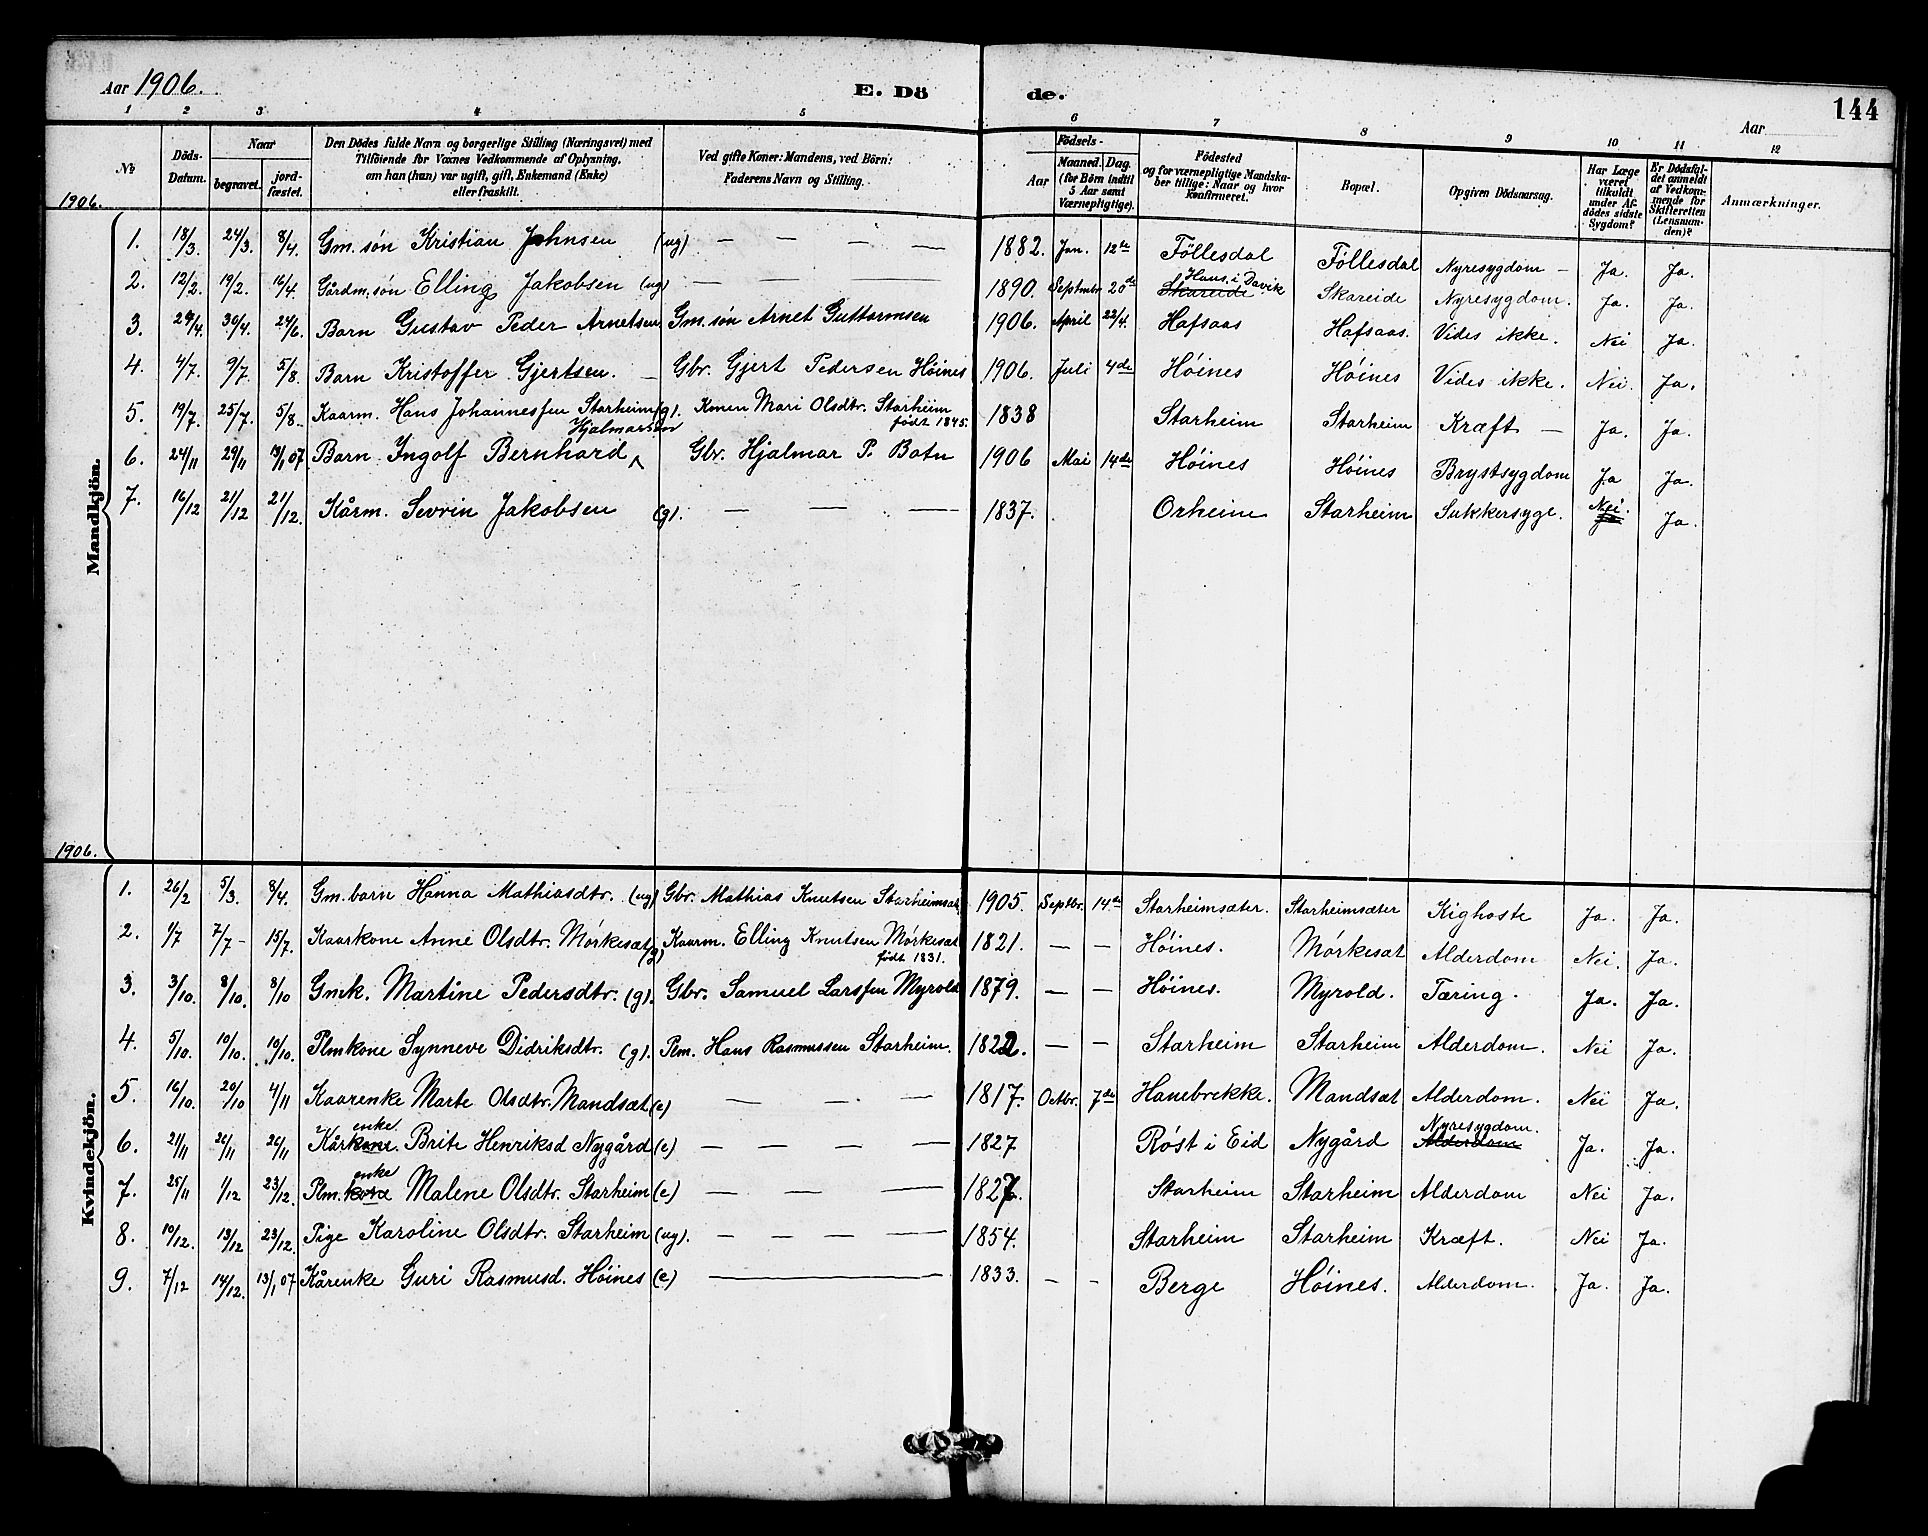 Aar 1906. E. Dö de. Aar 144
1 2 3 4 5 6 7 8 9 10 11 12
№ Döds-Datum. Naar begravet. jord-fæstet. Den Dödes fulde Navn og borgerlige Stilling (Næringsvei) med Tilföiende for Voxnes Vedkommende af Oplysning, om han (hun) var ugift, gift, Enkemand (Enke) eller fraskilt. Ved gifte Koner: Mandens, ved Börn: Faderens Navn og Stilling. Aar Födsels- Maaned. Dag. (for Börn indtil 5 Aar samt Værnepligtige). Födested og for værnepligtige Mandskaber tillige: Naar og hvor konfirmeret. Bopæl. Opgiven Dödsaarsag. Har Læge været tilkaldt under Afdödes sidste Sygdom? Er Dödsfaldet anmeldt af Vedkommende for Skifteretten (Lensmanden)? Anmærkninger.
1906.
Mandkjön.
1. 18/3. 24/3. 8/4. Gm. sön Kristian Johnsen (ug) — — — — 1882. Jan. 12te Föllesdal Föllesdal Nyresygdom — Ja. Ja.
2. 12/2. 19/2. 16/4. Gårdm. sön Elling Jakobsen (ug) — — — 1890. Septmbr 20de Skareide Haus i Davik Skareide Nyresygdom. Ja. Ja.
3. 29/4. 30/4. 24/6. Barn Gustav Peder Arnetsen Gm. søn Arnet Guttormsen 1906. April 22/4. Hafsaas Hafsaas. Vides ikke. Nei Ja.
4. 4/7. 9/7. 5/8. Barn Kristoffer Gjertsen. — Gbr. Gjert Pedersen Höines 1906. Juli 4de Höines Höines Vides ikke. Nei. Ja.
5. 19/7. 25/7. 5/8. Kaarm. Hans Johannessen Starheim (g). Konen Mari Olsdtr. Starheim født 1845. 1838 Starheim Starheim Kræft — Ja. Ja.
Hjalmarsen
6. 24/11 29/11 13/1 07 Barn Ingolf Bernhard Gbr. Hjalmar P. Botn 1906 Mai 14de Höines Höines Brystsygdom Ja Ja.
7. 16/12 21/12 21/12. Kårm. Sevrin Jakobsen (g). — — — 1837. Orheim Starheim Sukkersyge. Nei. Ja Ja.
1906.
Kvindekjön.
1. 26/2 5/3. 8/4. Gm. barn Hanna Mathiasdtr. (ug) Gbr. Mathias Knutsen Starheimsæt. 1905. Septbr. 14de Starheimsæter. Starheimsæter Kighoste Ja. Ja.
2. 1/7 7/7 - 15/7. Kaarkone Anne Olsdtr. Mörkesæt (g) Kaarm. Elling Knutsen Mörkesæt født 1831. 1821. — — Höines. Mörkesæt Alderdom Nei. Ja.
3. 3/10. 8/10. 8/10 Gmk. Martine Pedersdtr. (g). Gbr. Samuel Larssen Myrold 1879. — — Höines. Myrold. Tæring. Ja. Ja.
4. 5/10. 10/10. 10/10. Plmkone Synneve Didriksdtr. (g). Plm. Hans Rasmussen Starheim. 1822. — — Starheim Starheim Alderdom. Nei Ja.
5. 16/10. 20/10 4/11 Kaarenke Marte Olsdtr. Mandsæt (e) — — — 1817. Octbr. 7de Hanebrekke. Mandsæt Alderdom. Nei Ja.
6. 21/11 26/11 26/11 Kårkone. enke Brite Henriksd Nygård (e) — — — — 1827 Röst i Eid Nygård Alderdom Nyresygdom. Ja. Ja.
7. 25/11 1/12 23/12. Plm. kone enke Malene Olsdtr. Starheim (e) — — — — 1827. Starheim Starheim Alderdom Nei Ja.
8. 10/12. 13/12 23/12. Pige Karoline Olsdtr. Starheim (ug). — — — — 1854. Starheim Starheim Kræft. Nei Ja.
9. 7/12 14/12. 13/1 07 Kårenke Guri Rasmusd. Höines (e) — 1833. — — Berge Höines. Alderdom. Ja. Ja.